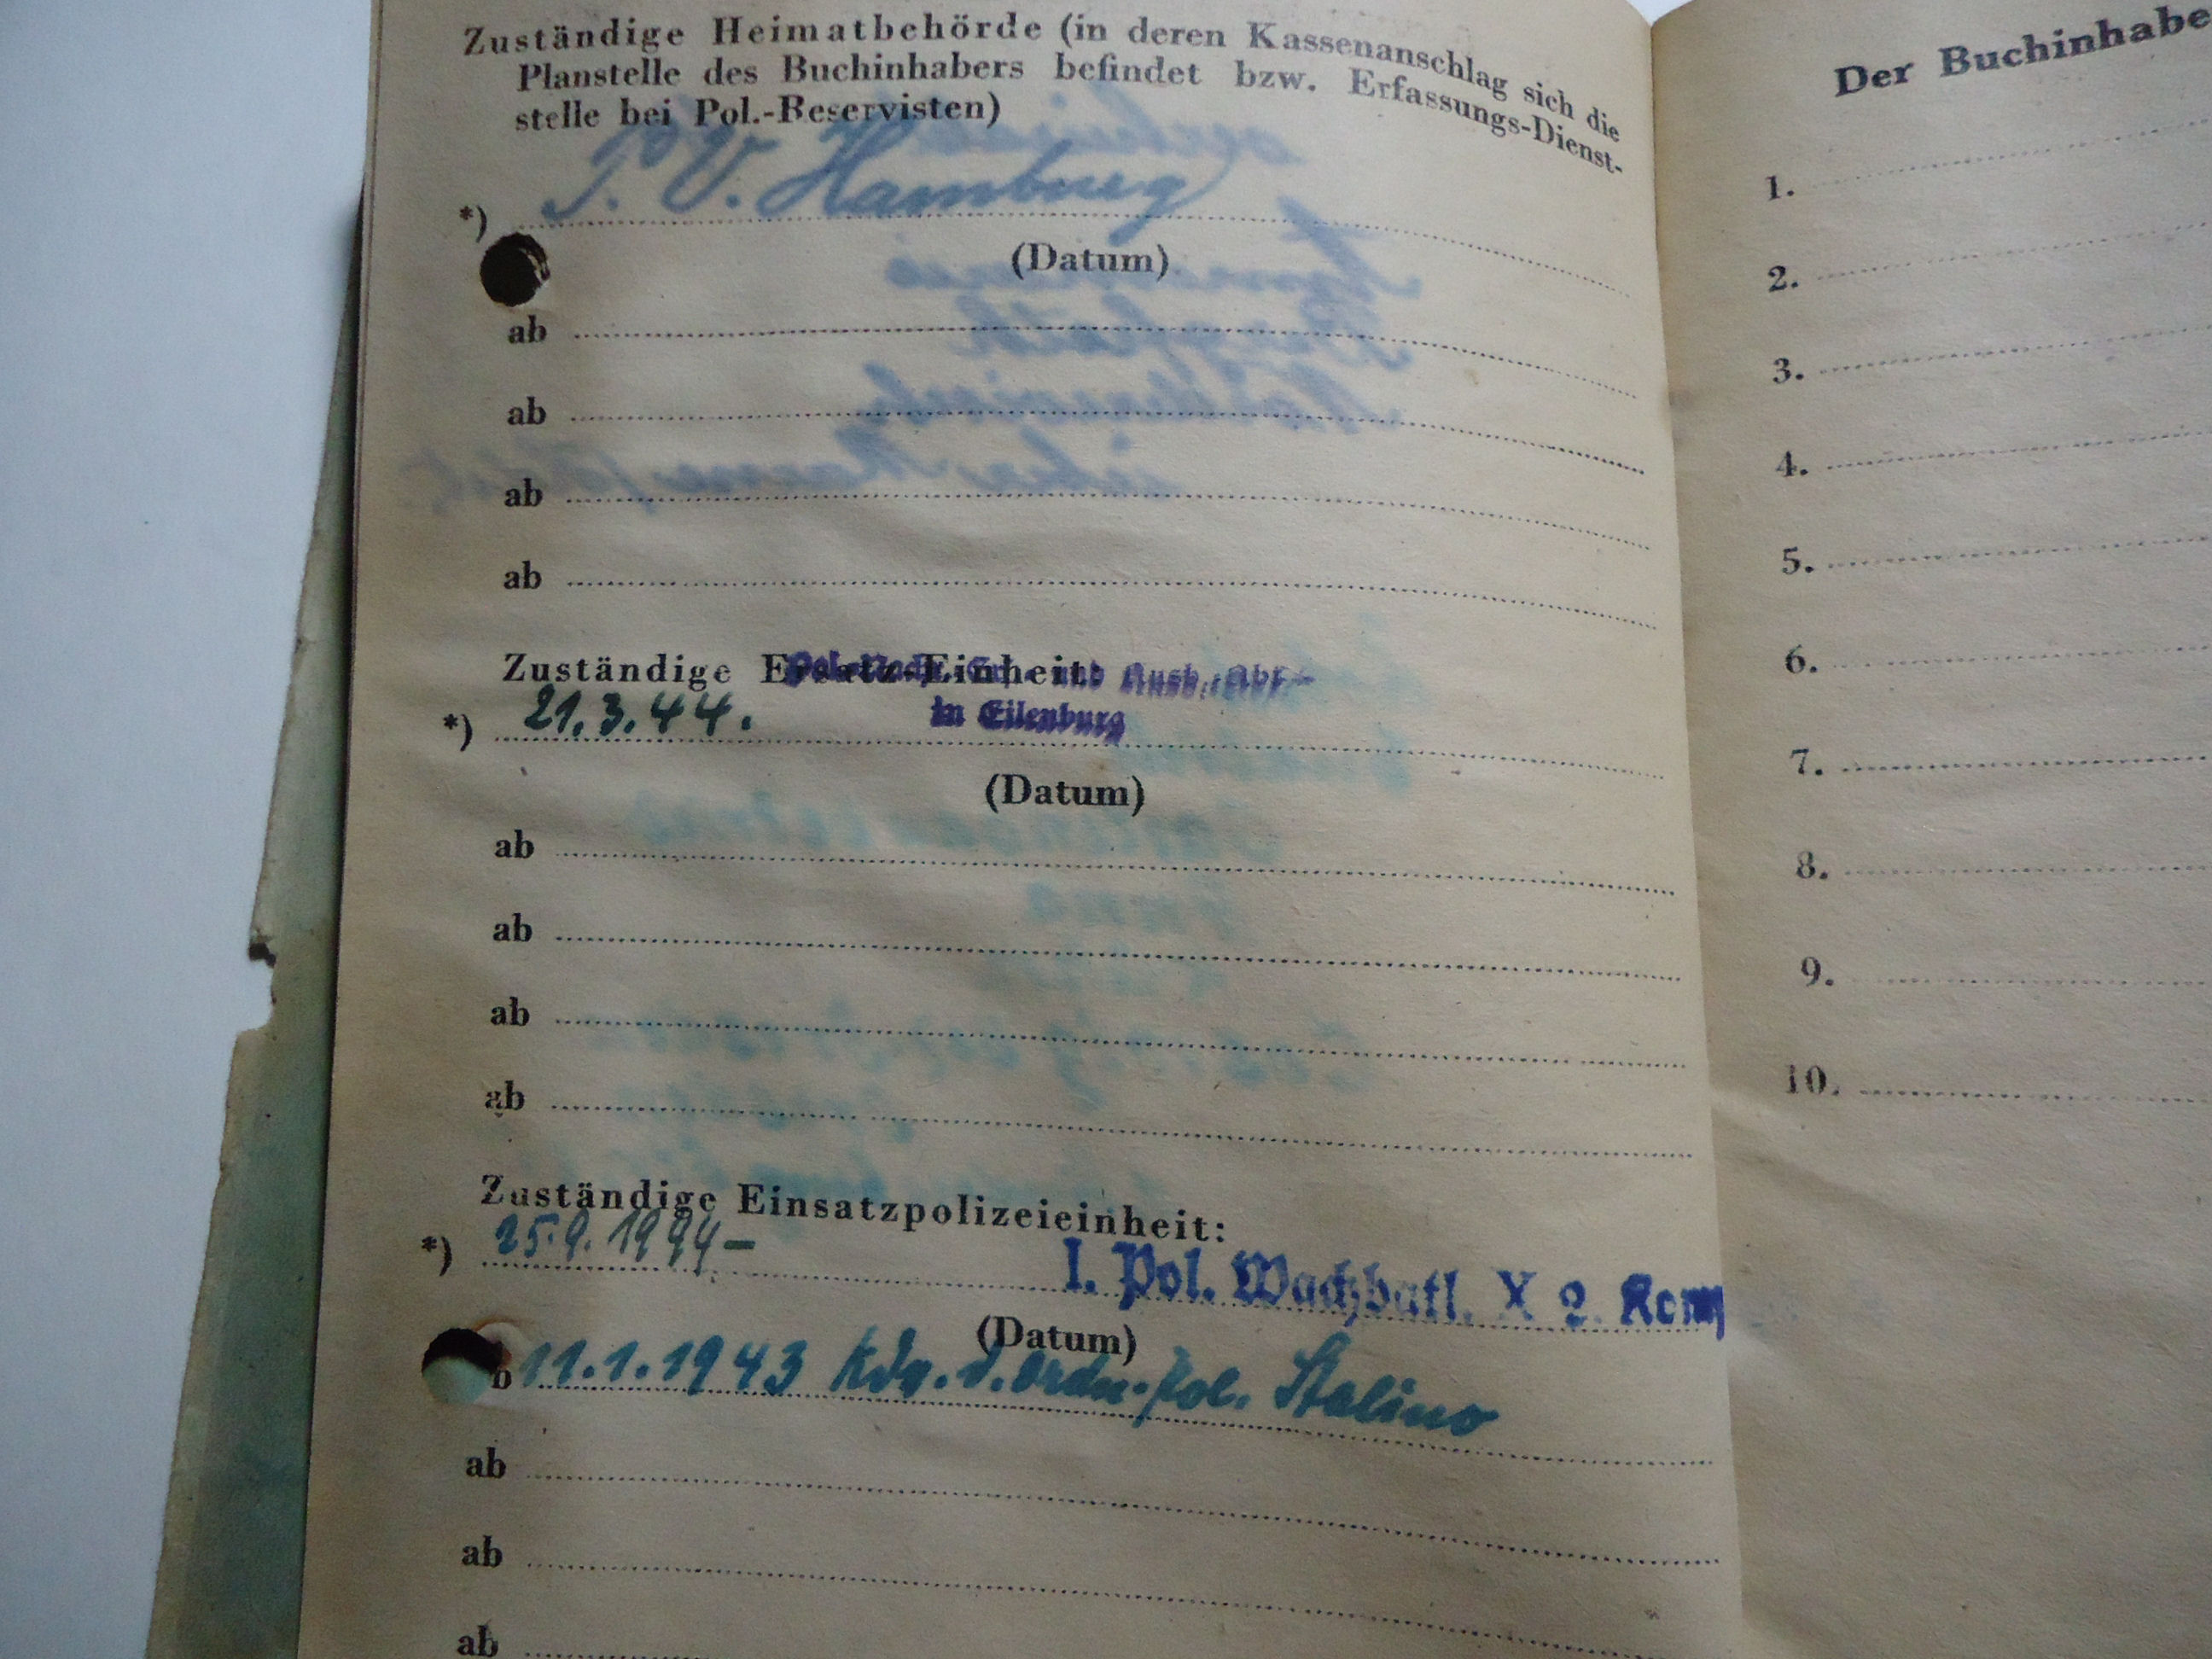 Zuständige Heimatbehörde (in deren Kassenanschlag sich die
Planstelle des Buchinhabers befindet bzw. Erfassungs-Dienst-
stelle bei Pol.-Reservisten)
*) P. V. Hamburg
(Datum)
ab
ab
ab
ab
Zuständige Ersatz-Einheit:
und Ausb. Abt.
in Eilenburg
*) 21.3.44.
(Datum)
ab
ab
ab
ab
Zuständige Einsatzpolizeieinheit:
*) 25.9.1944 - I. Pol. Wachbatl. X 2. Komp
(Datum)
b 11.1.1943 Kdr. d. Ordn.-Pol. Stalino
ab
ab
ab
Der Buchinhabe
1.
2.
3.
4.
5.
6.
7.
8.
9.
10.